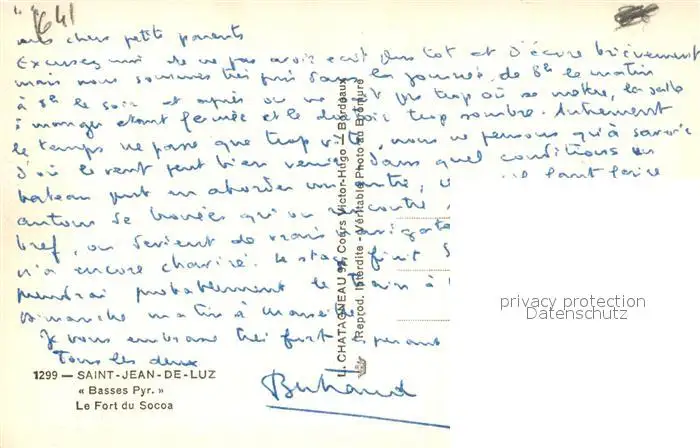 1641
mes chers petits parents
Excusez moi de ne pas avoir écrit plus tôt et d'écrire brièvement
mais nous sommes très pris dans la journée de 8h le matin
à 8h le soir et après on ne sait pas trop où se mettre, la salle
à manger étant fermée et le dortoir trop sombre. Autrement
le temps ne passe que trop vite, nous ne pensons qu'à savoir
d'où le vent peut bien venir, dans quel conditions un
bateau peut en aborder un autre, il faut faire
autour de bouées qu'on rencontre
bref, on devient de vrais navigateurs
n'a encore chaviré. Le stage finit
prendrai probablement le train à
dimanche matin à
Je vous embrasse très fort
Tous les deux
Bertrand
1299 — SAINT-JEAN-DE-LUZ
« Basses Pyr. »
Le Fort du Socoa
L. CHATAGNEAU 97, Cours Victor-Hugo — Bordeaux
(Reprod. Interdite - Véritable Photo au Bromure
privacy protection
Datenschutz